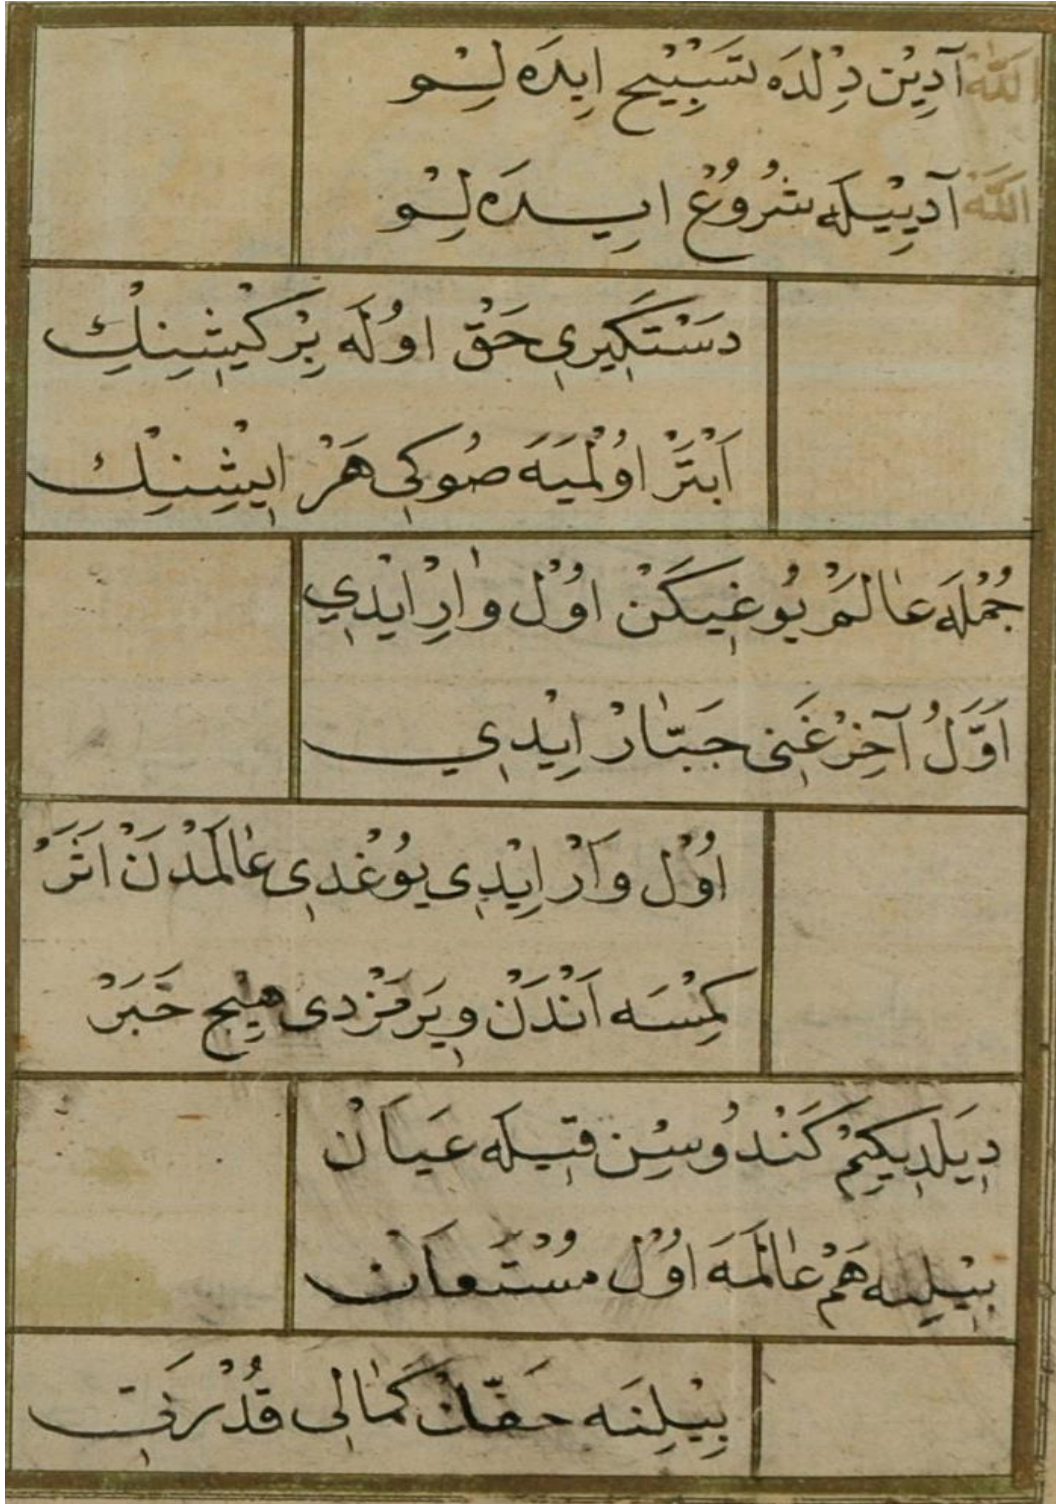 اللّٰه آدِيْن دِلْدَه تَسْبِيْح اِيدَه لِسْو
اللّٰه آدِيِيْلَه شُرُوعْ اِيـــدَه لِسْو
دَسْتَكِيرِي حَقْ اوُلَه بِرْ كَيْشِينِكْ
اَبْتَرْ اوُلْمَيَه صُوكِي هَرْ اِيْشِينِكْ
جُمْلَه عٰالَمْ يُوغِيكَنْ اوُلْ وٰارِ اِيْدِي
اَوَّلُ آخِرْ غَنِي جَبّٰارْ اِيْدِي
اوُلْ وَارْ اِيْدِي يُوغْدِي عٰالَمْدَنْ اَثَرْ
كِمْسَه اَنْدَنْ وِيَرمَزْدِي هِيچ خَبَرْ
دِيلَدِيكِمْ كَنْدُوسِيْن قِيلَه عَيَانْ
بِيْلِينَه هَمْ عٰالَمَه اوُلْ مُسْتَعَانْ
بِيْلِنَه حَقّكْ كَمٰالِي قُدْرَتِي